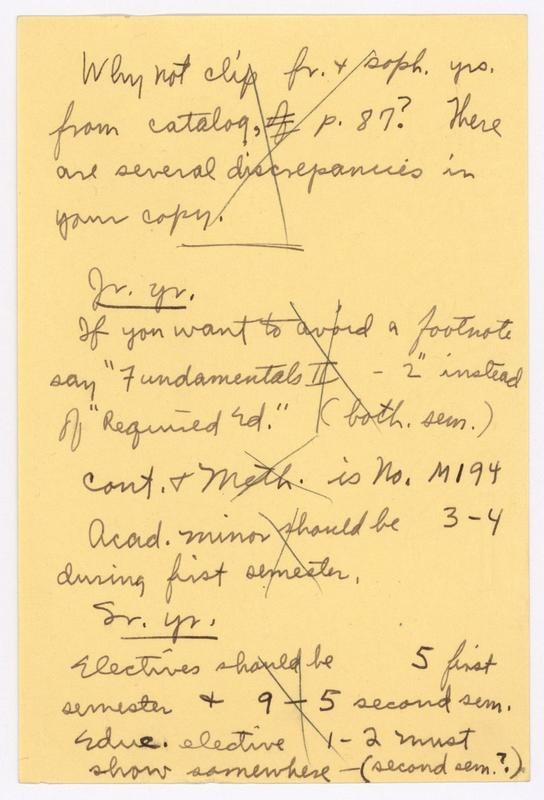 Why not clip fr. & soph. yrs.
from catalog, p. 87? There
are several discrepancies in
your copy.
Jr. yr.
If you want to avoid a footnote
say "Fundamentals II - 2" instead
of "Required Ed." (both. sem.)
Cont. & Meth. is No. M194
Acad. minor should be 3-4
during first semester.
Sr. yr.
Electives should be 5 first
semester & 9-5 second sem.
Educ. elective 1-2 must
show somewhere - (second sem.?)